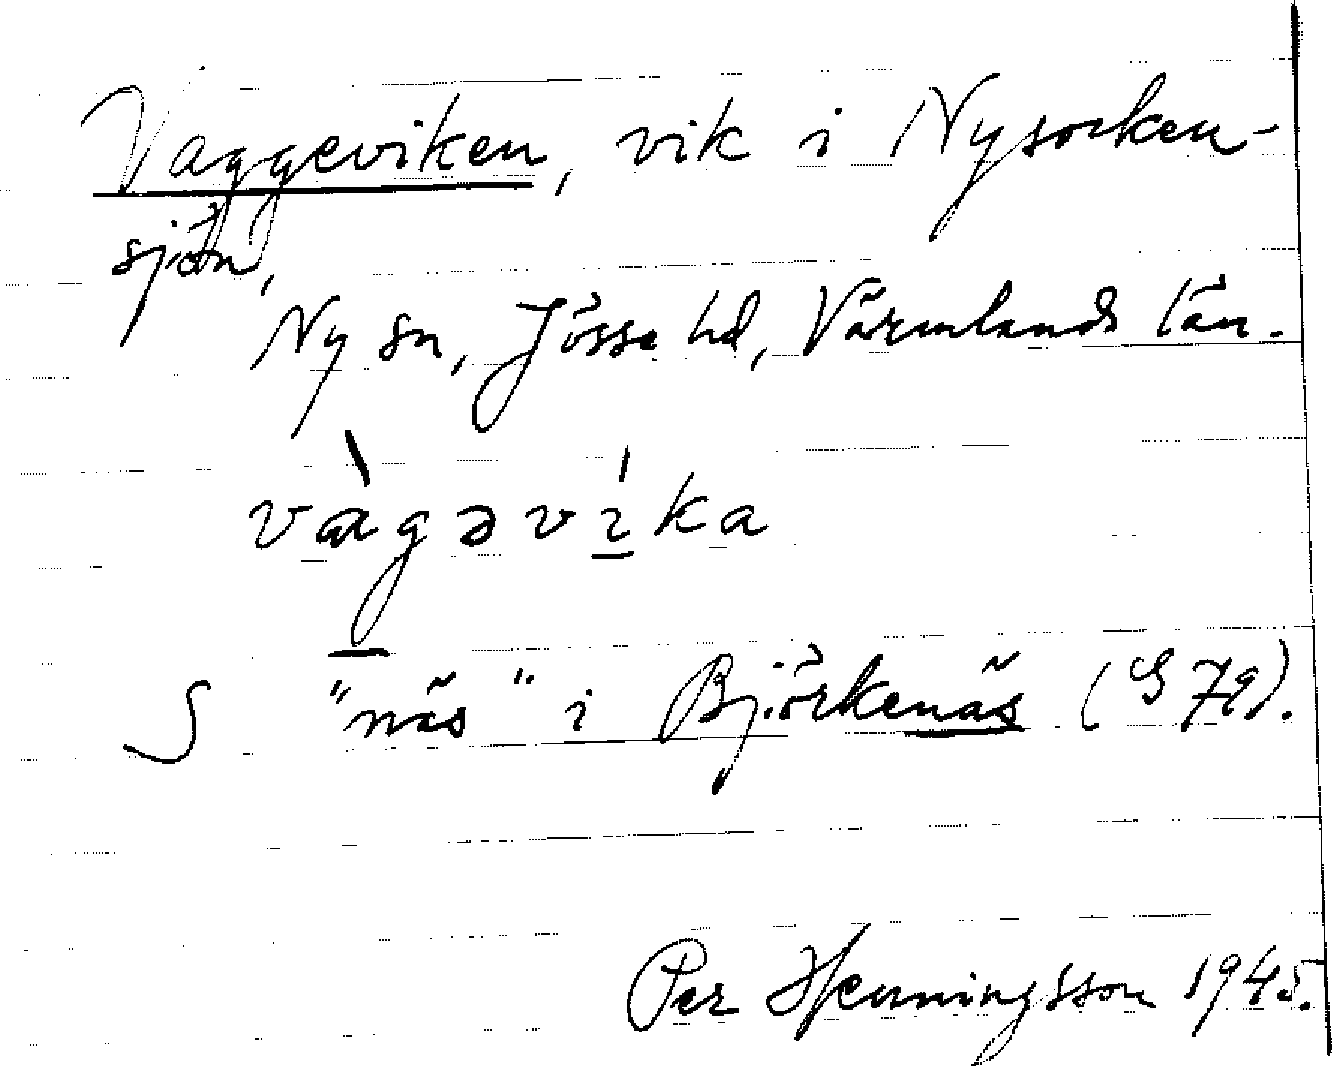 Vaggeviken, vik i Nysocken-
sjön,
Ny sn, Jösse hd, Värmlands län.
vàgəvíka
S "näs" i Björkenäs (G 79).
Per Henningsson 1945.